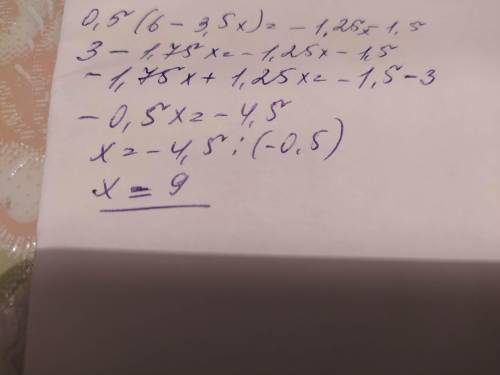 0,5(6 - 3,5x) = - 1,25x - 1,5
3 - 1,75x = - 1,25x - 1,5
- 1,75x + 1,25x = - 1,5 - 3
- 0,5x = - 4,5
x = - 4,5 : (-0,5)
x = 9